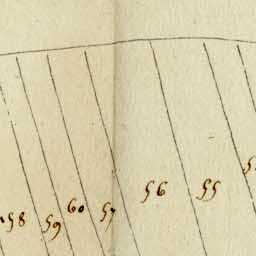 58 59 60 57 56 55